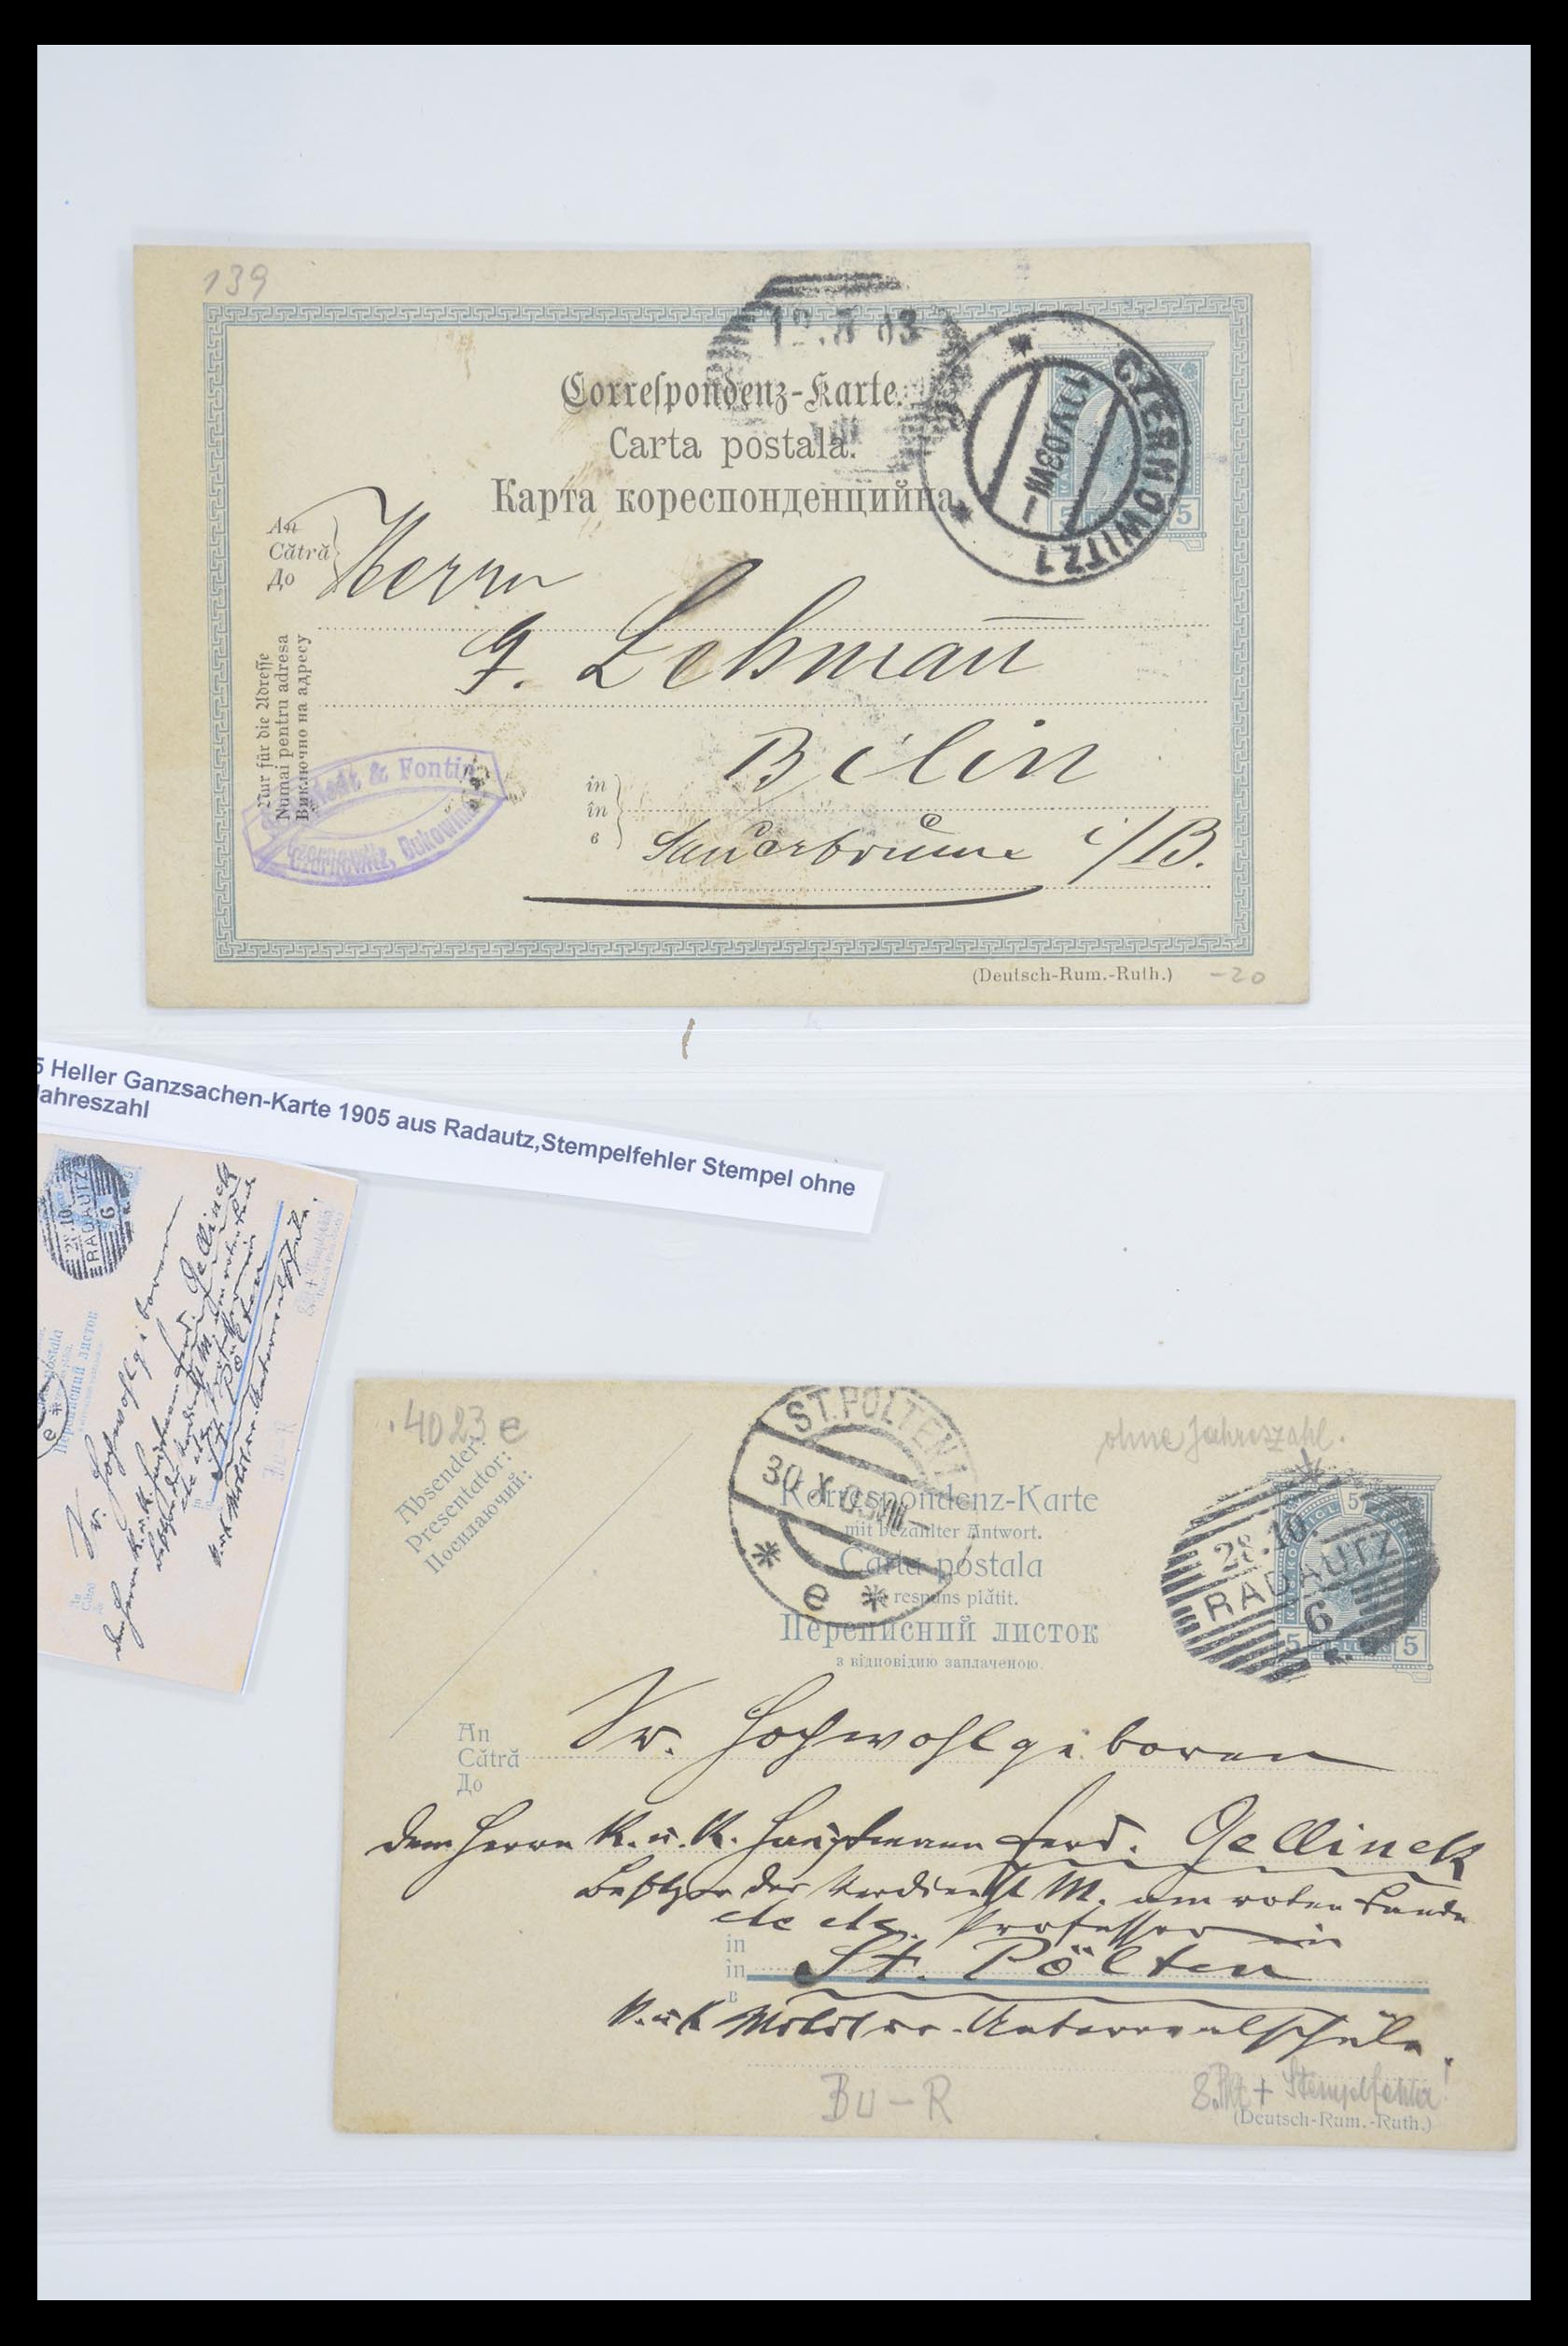 139
12. 03
Correspondenz-Karte.
Carta postala.
Карта кореспонденцийна
CZERNOWITZ 1
11 V 03 VIII
5 5
An
Cătră
До
Herrn
J. Lehmañ
Bilin
Sauerbrunn i/B.
in
în
в
Nur für die Adresse
Numai pentru adresa
Виключно на адресу
& Fontin
Czernowitz, Bukowina
(Deutsch-Rum.-Ruth.)
-20
5 Heller Ganzsachen-Karte 1905 aus Radautz,Stempelfehler Stempel ohne
Jahreszahl
28.10.
RADAUTZ
6
postala
листок
e
Sr. Hochwohlgeboren
Gellinek
St. Pölten
Bu-R
4023 e
Absender:
Presentator:
Посилаючий:
ST. PÖLTEN 1
30 X 05 VIII
* e *
ohne Jahreszahl.
Korrespondenz-Karte
mit bezahlter Antwort.
Carta postala
cu respuns plătit.
Переписний листок
з відповідию заплаченою.
28.10.
RADAUTZ
6
5
5 HELLER 5
An
Cătră
До
Sr. Hochwohlgeboren
dem Herrn K. u. K. Hauptmann Ferd. Gellinek
Besitzer der Verdienst M. am roten Bande
etc etc. Professor in
in
în
в
St. Pölten
K. u. K. Militär-Unterrealschule.
Bu-R
8.Pkt + Stempelfehler!
(Deutsch-Rum.-Ruth.)